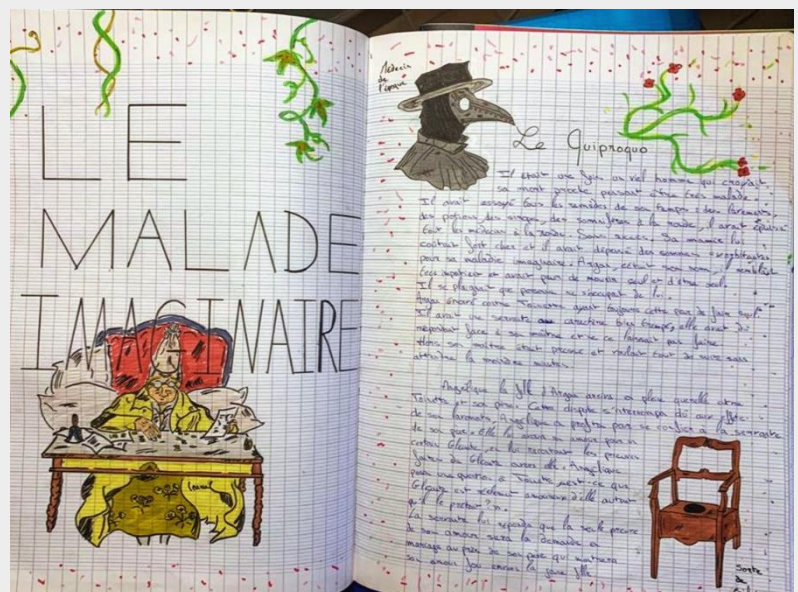 LE
MALADE
IMAGINAIRE
Médecin
de
l'époque
Le Quiproquo
Il était une fois un viel homme qui croyait
sa mort proche pensant être très malade.
Il avait essayé tous les remèdes de son temps : des lavements,
des potions, des sirops, des somnifères à la ronde, il avait épuisé
tout les médecins à la ronde. Sans succès. Sa manie lui
coûtait fort cher et il avait dépensé des sommes exorbitantes
pour sa maladie imaginaire. Argan, c'était son nom, il semblait
très impatient et avait peur de mourir seul et d'être seul.
Il se plaignait que personne ne s'occupait de lui.
Argan énervé contre Toinette ayant toujours cette peur de
Il avait une servante au caractère bien trempé, elle avait du
répondant face à son maître et ne se laissait pas faire
Alors son maître était pressé et voulait tout de suite sans
attendre la moindre minute.
Angélique la fille d'Argan arriva en pleine querelle entre
Toinette et son père. Cette dispute s'interrompa dû aux effets
de son lavement, Angélique en profita pour se confier à la servante
de son père. Elle lui avoua son amour pour un
certain Cléante, et lui racontant les preuves
de Cléante envers elle. Angélique
posa une question à Toinette, est-ce que
Cléante est réellement amoureux d'elle autant
qu'il le prétend ?
La servante lui répondit que la seule preuve
de son amour sera la demande en
mariage auprès de son père qui montrera
son amour fou envers la jeune fille
Sorte
de